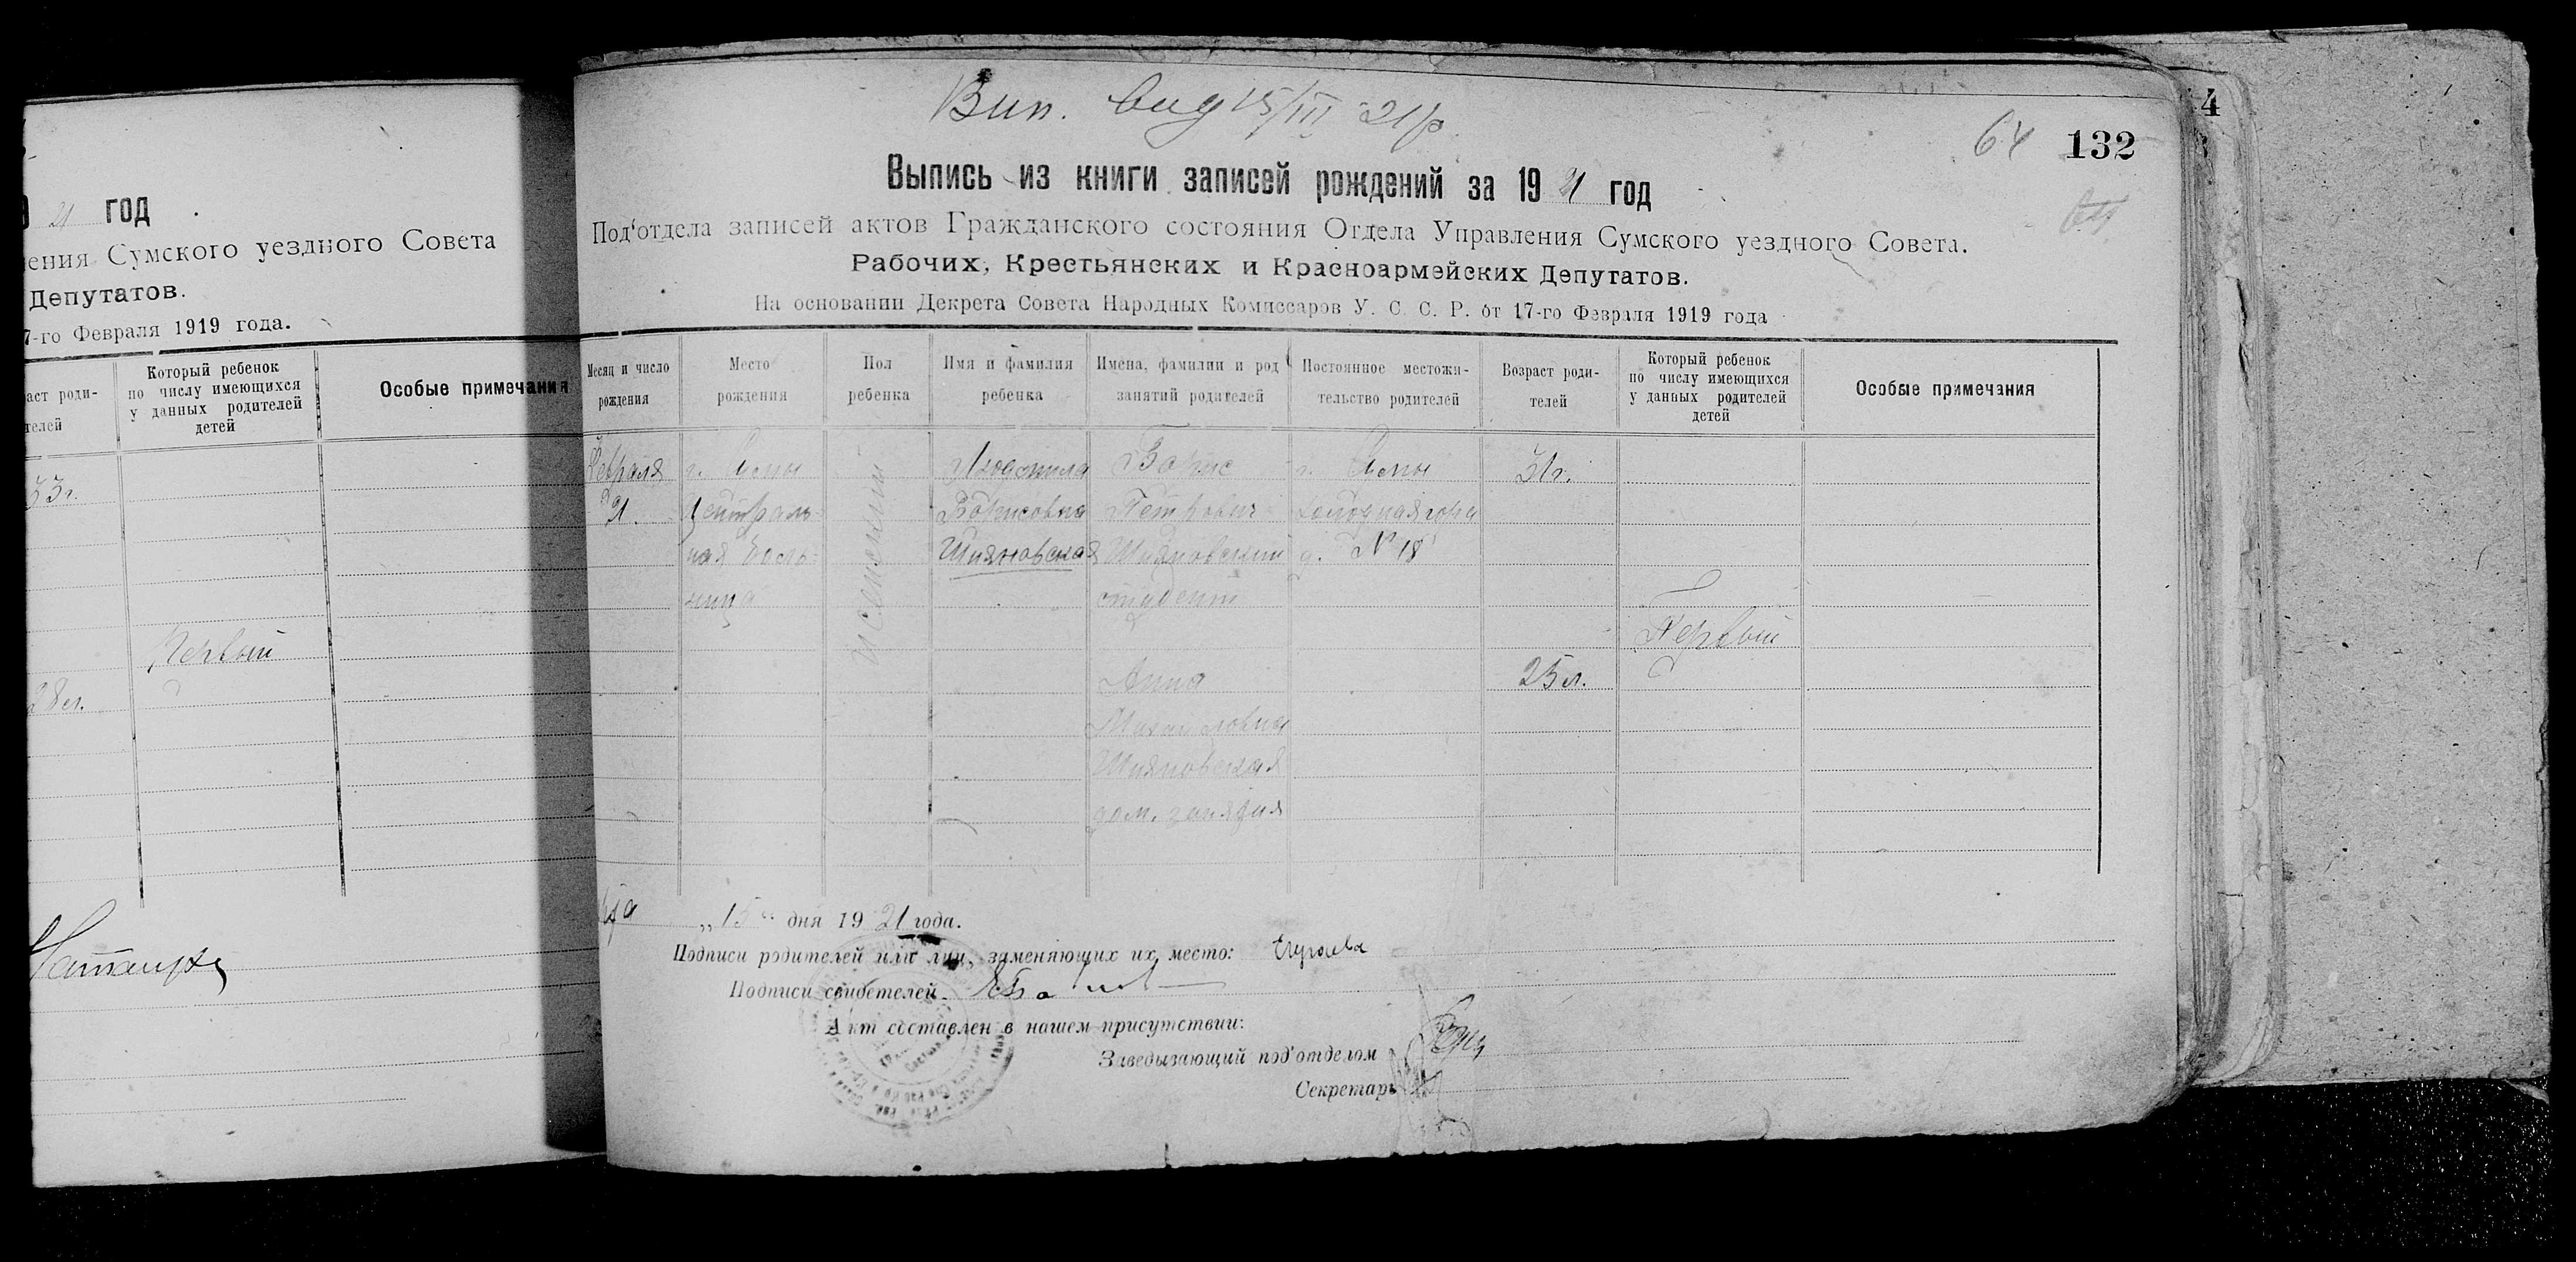 21 год
ения Сумского уездного Совета
Депутатов.
7-го Февраля 1919 года.
аст роди-
телей
Который ребенок
по числу имеющихся
у данных родителей
детей
Особые примечания
33 г.
Первый
28 л.
Вип. вид 15/III 21 р.
64 132
Выпись из книги записей рождений за 19 21 год
Под'отдела записей актов Гражданского состояния Отдела Управления Сумского уездного Совета.
Рабочих, Крестьянских и Красноармейских Депутатов.
На основании Декрета Совета Народных Комиссаров У. С. С. Р. от 17-го Февраля 1919 года
Месяц и число
рождения
Место
рождения
Пол
ребенка
Имя и фамилия
ребенка
Имена, фамилии и род
занятий родителей
Постоянное местожи-
тельство родителей
Возраст роди-
телей
Который ребенок
по числу имеющихся
у данных родителей
детей
Особые примечания
Февраля
21.
г. Сумы
Централь-
ная боль-
ница
женский
Людмила
Борисовна
Шияновская
Борис
Петрович
Шияновский
студент
Анна
Михайловна
Шияновская
дом. занятия
г. Сумы
Холодная гора
д. № 18
31 г.
25 л.
Первый
„15“ дня 19 21 года.
Подписи родителей или лиц, заменяющих их место:
Подписи свидетелей
Акт составлен в нашем присутствии:
Заведывающий под'отделом
Секретарь
4